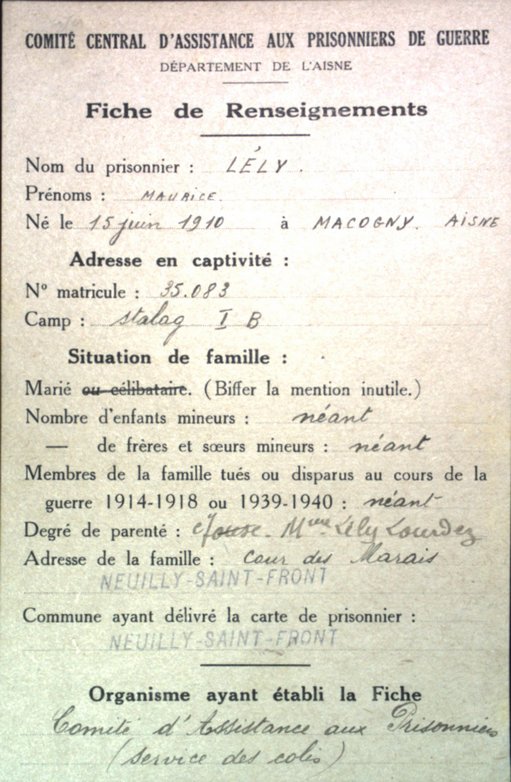 COMITÉ CENTRAL D'ASSISTANCE AUX PRISONNIERS DE GUERRE
DÉPARTEMENT DE L'AISNE
Fiche de Renseignements
Nom du prisonnier : LÉLY.
Prénoms : MAURICE.
Né le 15 juin 1910 à MACOGNY. AISNE
Adresse en captivité :
N° matricule : 35.083
Camp : Stalag I B
Situation de famille :
Marié ou célibataire. (Biffer la mention inutile.)
Nombre d'enfants mineurs : néant
— de frères et sœurs mineurs : néant
Membres de la famille tués ou disparus au cours de la
guerre 1914-1918 ou 1939-1940 : néant
Degré de parenté : épouse. Mme Lély Lourdez
Adresse de la famille : Cour des Marais
NEUILLY-SAINT-FRONT
Commune ayant délivré la carte de prisonnier :
NEUILLY-SAINT-FRONT
Organisme ayant établi la Fiche
Comité d'Assistance aux Prisonniers
(Service des colis)